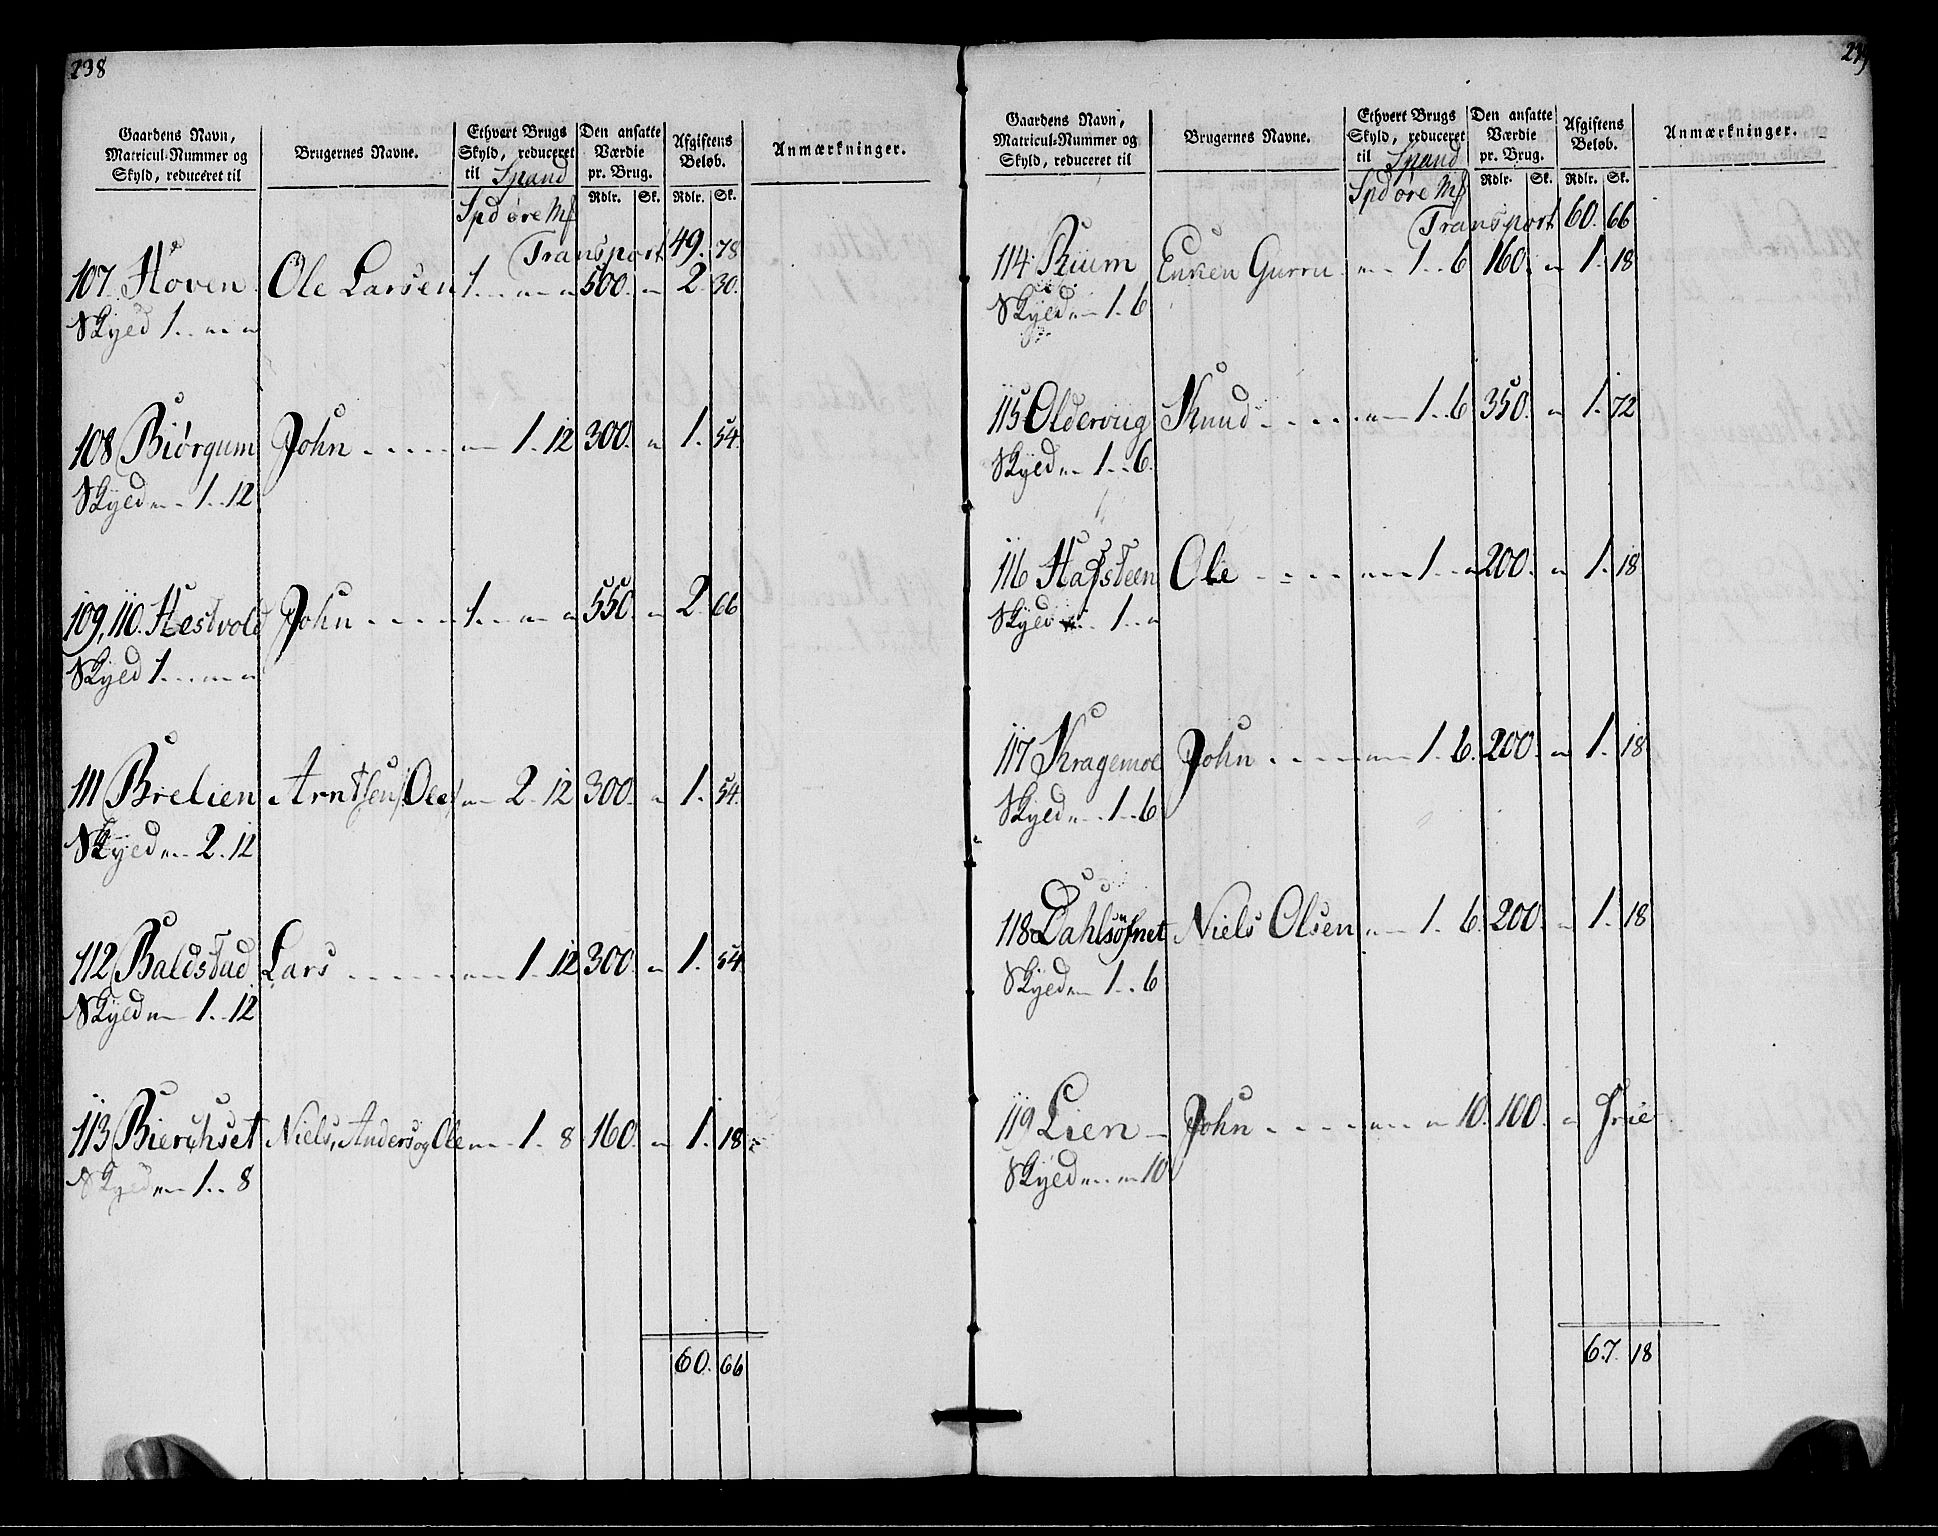 238
Gaardens Navn, Matricul-Nummer og Skyld, reduceret til | Brugernes Navne. | Ethvert Brugs Skyld, reduceret til Spand | Den ansatte Værdie pr. Brug. | Afgiftens Beløb. | Anmærkninger.
Spd øre Mf | Rdlr. | Sk. | Rdlr. | Sk.
Transport 49. 78
107 Hoven Ole Larsen 1 500. 2. 30.
Skyld 1
108 Biørgum John 1. 12 300. 1. 54
Skyld 1. 12
109, 110. Hestvold John 1 550. 2. 66
Skyld 1
111 Brelien Arntsen/Ole/ 2. 12 300. 1. 54
Skyld 2. 12
112 Baldstad Lars 1. 12 300. 1. 54
Skyld 1. 12
113 Bierchset Niels, Anders og Ole 1. 8 160. 1. 18
Skyld 1. 8
60. 66
239
Gaardens Navn, Matricul-Nummer og Skyld, reduceret til | Brugernes Navne. | Ethvert Brugs Skyld, reduceret til Spand | Den ansatte Værdie pr. Brug. | Afgiftens Beløb. | Anmærkninger.
Spd øre Mf | Rdlr. | Sk. | Rdlr. | Sk.
Transport 60. 66
114 Rium Enken Gurru 1. 6 160. 1. 18
Skyld 1. 6
115 Oldervig Knud 1. 6 350. 1. 72
Skyld 1. 6.
116 Hafsteen Ole 1 200. 1. 18
Skyld 1
117 Kragemoe John 1. 6. 200. 1. 18
Skyld 1. 6
118 Niels Olsen 1. 6. 200. 1. 18
Skyld 1. 6
119 Lien John 10. 100. Frie
Skyld 10
67. 18